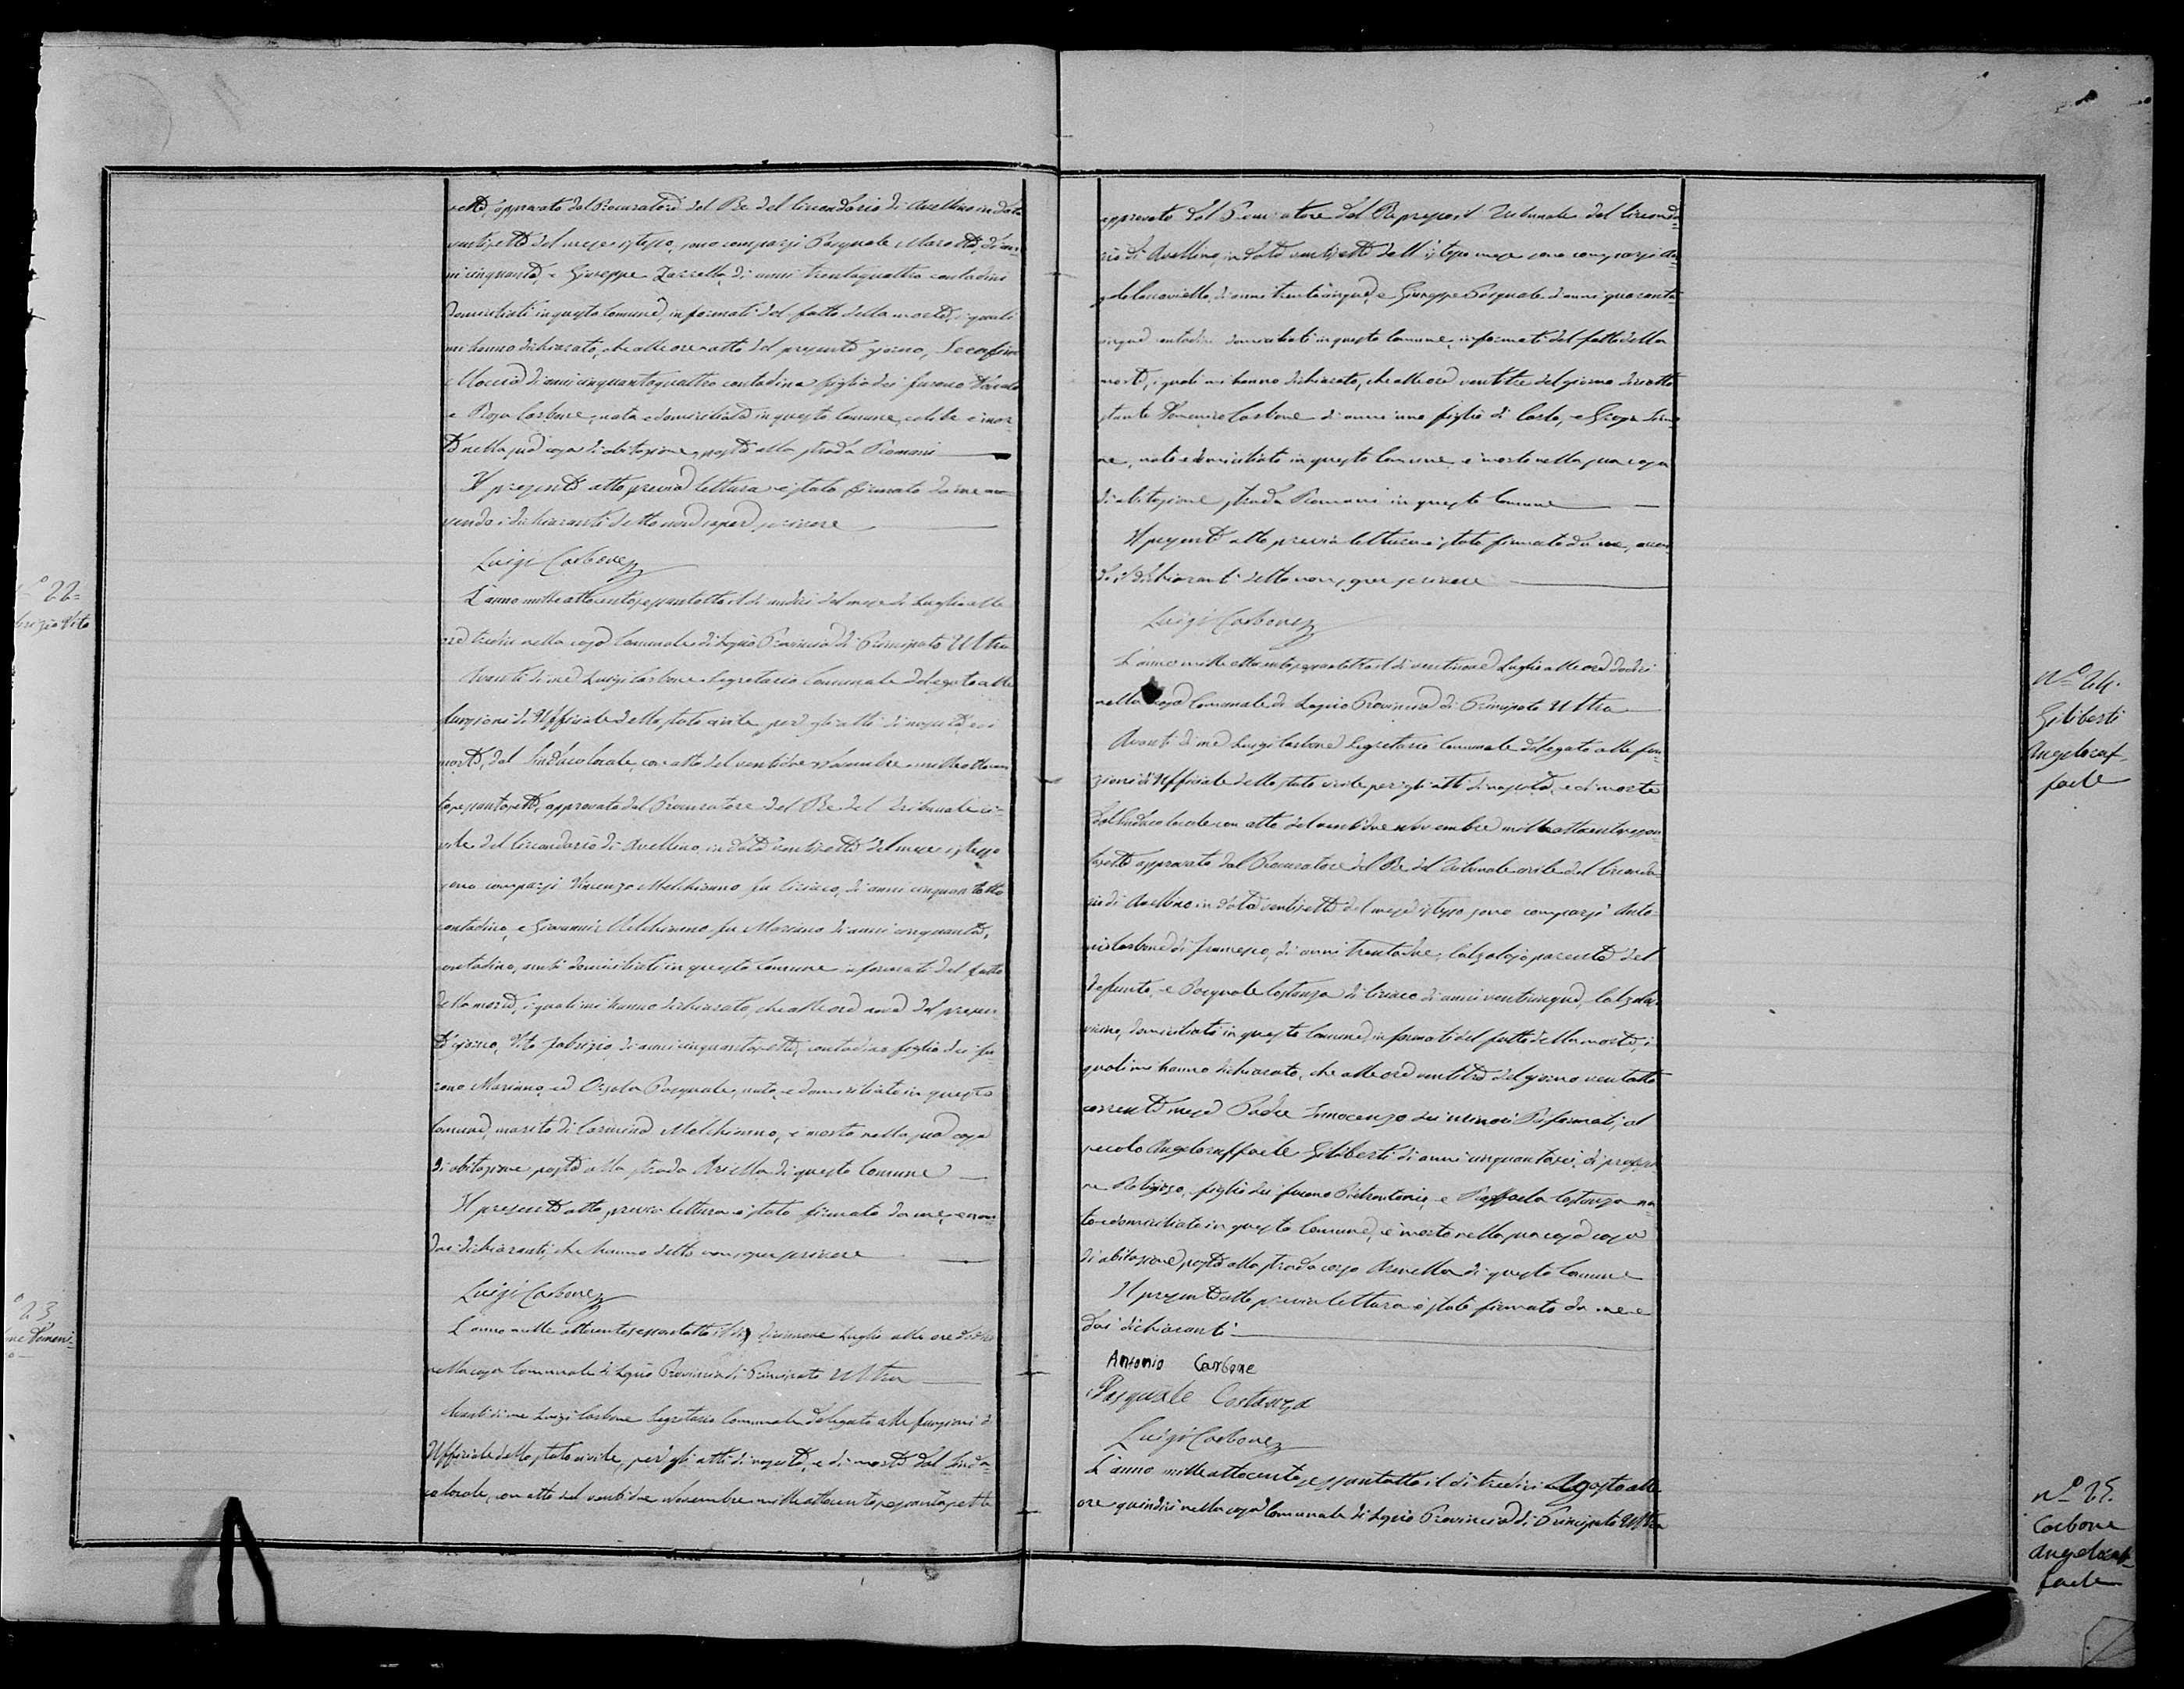 approvato dal Procuratore del Re del Circondario di Avellino in data
ventisette del mese istesso, sono comparsi Pasquale Marotta, di an-
ni cinquanta, e Giuseppe Zarrella di anni trentaquattro contadini
domiciliati in questo Comune, informati del fatto della morte, i quali
mi hanno dichiarato, che alle ore otto del presente giorno, Serafina
Moccia di anni cinquantaquattro contadina figlia dei furono
e Rosa Carbone, nata e domiciliata in questo Comune, celibe è mor-
ta nella sua casa di abitazione, posta alla strada Romani
Il presente atto previa lettura è stato firmato da me a-
vendo i dichiaranti detto non saper scrivere
Luigi Carbone
N.° 22.
Fabrizio Vito
L'anno milleottocentosessantotto il dì undici del mese di Luglio alle
ore tredici nella casa Comunale di Lapio Provincia di Principato Ultra
Avanti di me Luigi Carbone Segretario Comunale delegato alle
funzioni di Uffiziale dello stato civile per gli atti di nascita, e di
morte, dal Sindaco locale, con atto del ventidue Novembre milleottocen-
tosessantasette, approvato dal Procuratore del Re del Tribunale ci-
vile del Circondario di Avellino, in data ventisette del mese istesso
sono comparsi Vincenzo Melchionno fu Ciriaco, di anni cinquantotto
contadino, e Giovanni Melchionno fu Mariano di anni cinquanta,
contadino, domiciliati in questo Comune informati del fatto
della morte, i quali mi hanno dichiarato, che alle ore nove del presen-
te giorno, Vito Fabrizio di anni cinquantasette, contadino figlio dei fu-
rono Mariano, ed Orsola Pasquale, nato, e domiciliato in questo
Comune, marito di Carmina Melchionno, è morto nella sua casa
di abitazione posta alla strada Arella di questo Comune
Il presente atto previa lettura è stato firmato da me, e non
dai dichiaranti, che hanno detto non saper scrivere
Luigi Carbone
23
L'anno mille ottocentosessantotto il dì diecinove Luglio alle ore
nella casa Comunale di Lapio Provincia di Principato Ultra
Avanti di me Luigi Carbone Segretario Comunale delegato alle funzioni di
Uffiziale dello stato civile, per gli atti di nascita, e di morte dal Sinda-
co locale, con atto del ventidue Novembre milleottocentosessantasette
approvato dal Procuratore del Re presso il Tribunale del Circonda-
rio di Avellino, in data ventisette dell'istesso mese sono comparsi An-
gelo di anni trentacinque, e Giuseppe Pasquale d'anni quaranta-
cinque contadini domiciliati in questo Comune, informati del fatto della
morte, i quali mi hanno dichiarato, che alle ore ventitre del giorno diciotto
stante Domenico Carbone di anni uno figlio di Carlo, e
nato e domiciliato in questo Comune è morto nella sua casa
di abitazione strada Romani in questo Comune
Il presente atto previa lettura è stato firmato da me, aven-
do i dichiaranti detto non saper scrivere
Luigi Carbone
N.° 24.
Giliberti
Angeloraf-
faele
L'anno milleottocentosessantotto il dì ventinove Luglio alle ore dodici
nella casa Comunale di Lapio Provincia di Principato Ultra
Avanti di me Luigi Carbone Segretario Comunale delegato alle fun-
zioni di Uffiziale dello stato civile per gli atti di nascita, e di morte
dal Sindaco locale con atto del ventidue Novembre milleottocentosessan-
tasette approvato dal Procuratore del Re del Tribunale civile del Circonda-
rio di Avellino in data ventisette del mese istesso sono comparsi Anto-
nio Carbone di Francesco, di anni trentadue, Calzolajo parente del
defunto, e Pasquale Costanza di Ciriaco di anni venticinque, Calzolajo
vicino, domiciliati in questo Comune, informati del fatto della morte, i
quali mi hanno dichiarato, che alle ore ventitre del giorno ventotto
corrente mese Padre Innocenzo dei minori Riformati, al
secolo Angeloraffaele Giliberti di anni cinquantasei, di professio-
ne Religioso, figlio dei furono Pietrantonio, e Raffaela Costanza na-
to e domiciliato in questo Comune, è morto nella sua casa casa
di abitazione, posta alla strada corso Arenella di questo Comune
Il presente atto previa lettura è stato firmato da me e
dai dichiaranti
Antonio Carbone
Pasquale Costanza
Luigi Carbone
N.° 25.
Carbone
Angeloraf-
faele
L'anno milleottocentosessantotto il dì tredici Agosto alle
ore quindici nella casa Comunale di Lapio Provincia di Principato Ultra